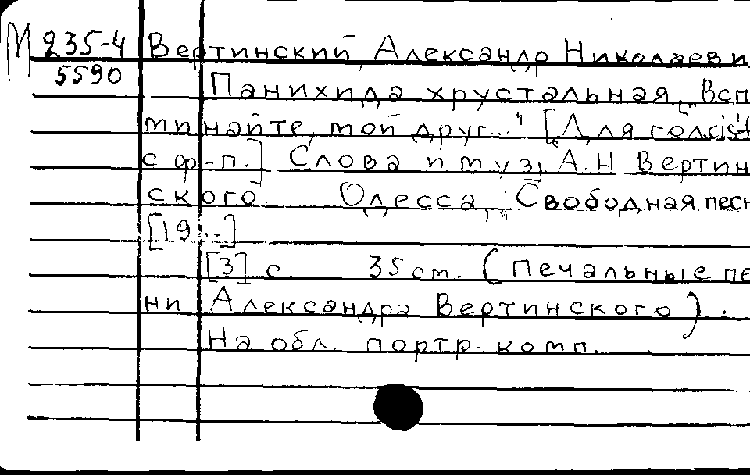 М 235-4 Вертинский, Александр Николаеви
5590
Панихида хрустальная „Всп
минайте, мой друг..." [Для голоса
с ф-п.] Слова и муз. А.Н Вертин
ского Одесса, Свободная песн
[19...]
[3] с. 35 см. (Печальные пе
ни Александра Вертинского).
На обл. портр. комп.